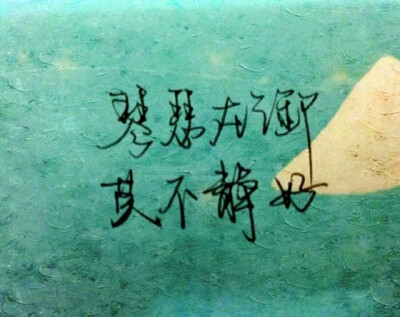 琴瑟在御
莫不靜好